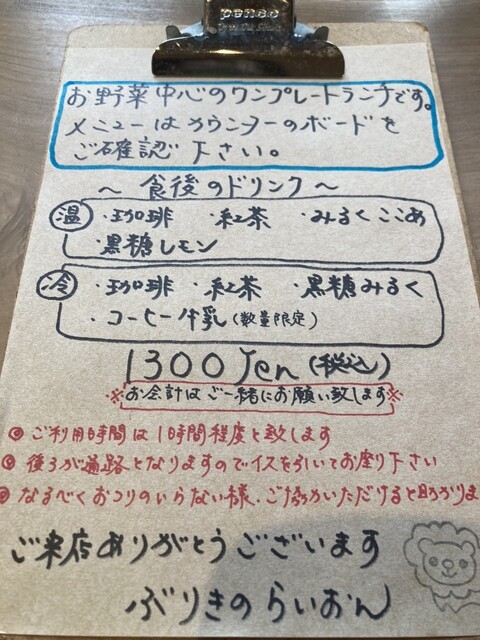 penco
お野菜中心のワンプレートランチです。
メニューはカウンターのボードを
ご確認下さい。
～食後のドリンク～
温 ・珈琲 ・紅茶 ・みるくここあ
・黒糖レモン
冷 ・珈琲 ・紅茶 ・黒糖みるく
・コーヒー牛乳(数量限定)
1300yen(税込)
※お会計はご一緒にお願い致します※
◎ご利用時間は1時間程度と致します
◎後ろが通路となりますのでイスを引いてお座り下さい
◎なるべくおつりのいらない様、ご協力いただけると助かりま
ご来店ありがとうございます
ぶりきのらいおん